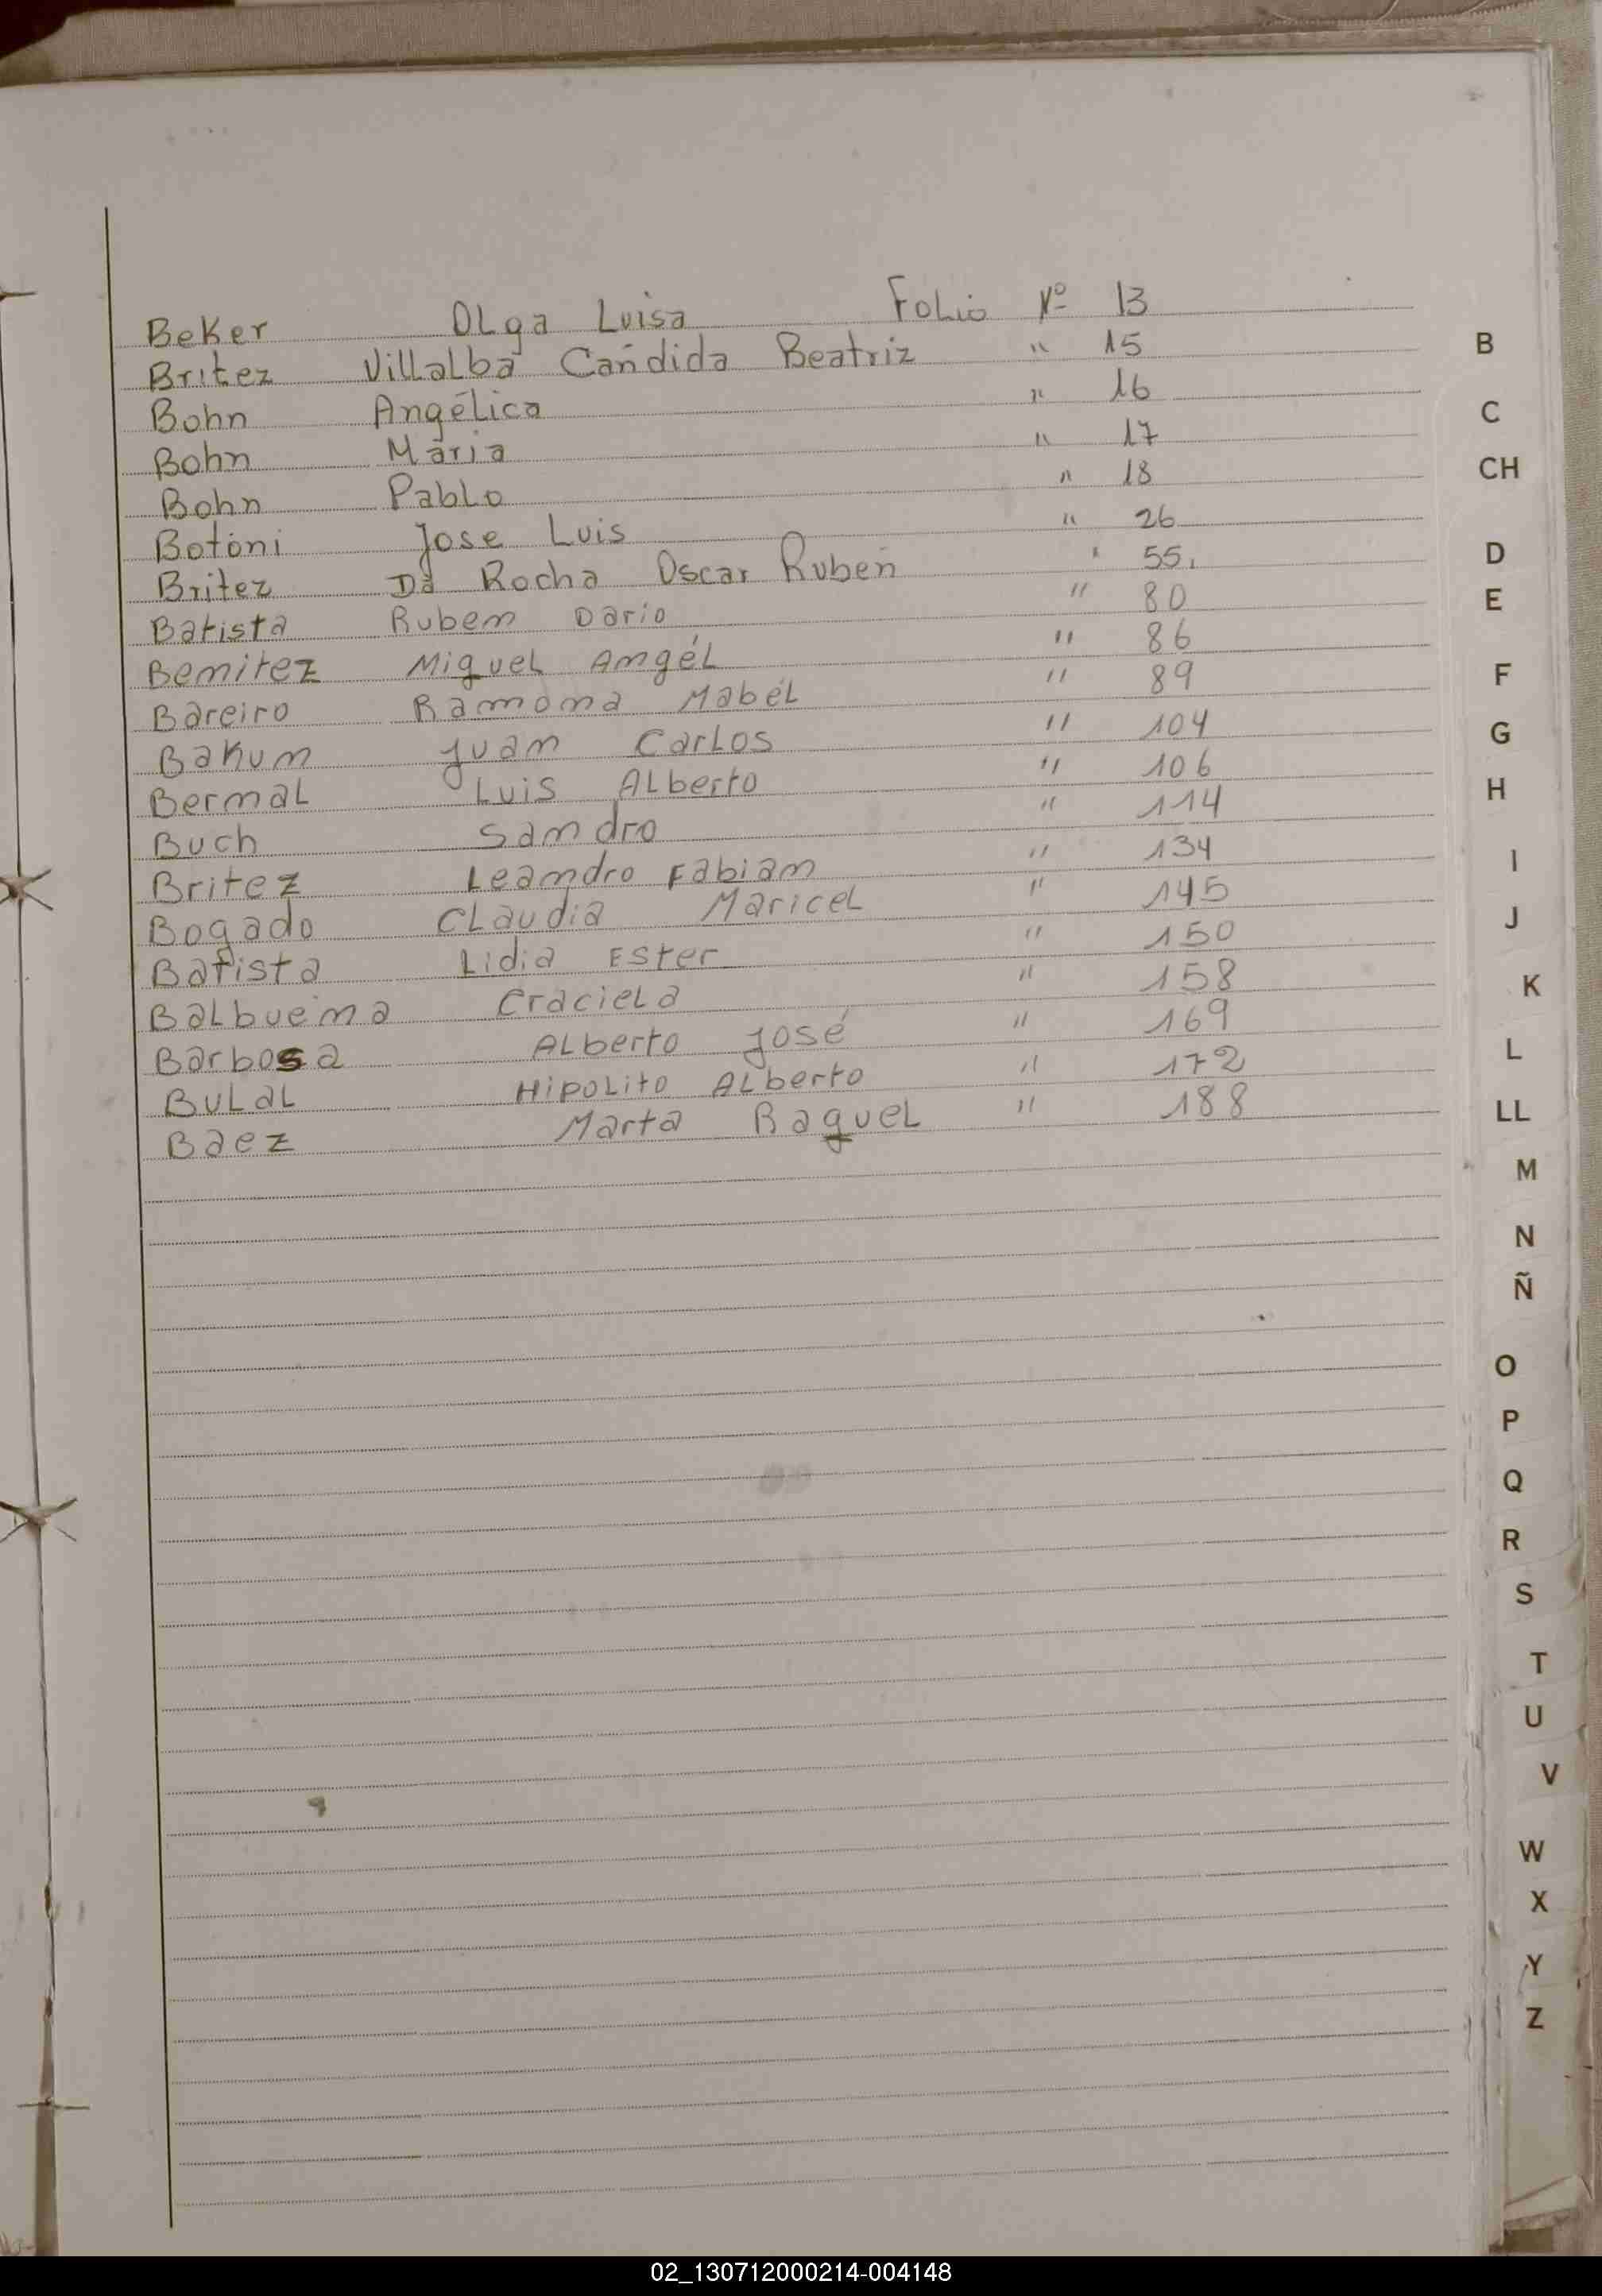 Beker Olga Luisa Folio Nº 13
Britez Villalba Candida Beatriz " 15
Bohn Angélica " 16
Bohn Maria " 17
Bohn Pablo " 18
Botoni Jose Luis " 26
Britez Da Rocha Oscar Ruben " 55.
Batista Rubem Dario " 80
Bemitez Miguel Amgél " 86
Bareiro Ramoma Mabél " 89
Bakum Juam Carlos " 104
Bermal Luis Alberto " 106
Buch Samdro " 114
Britez Leamdro Fabiam " 134
Bogado Claudia Maricel " 145
Batista Lidia Ester " 150
Balbuema Craciela " 158
Barbosa Alberto José " 169
Bulal Hipolito Alberto " 172
Baez Marta Raquel " 188
B
C
CH
D
E
F
G
H
I
J
K
L
LL
M
N
Ñ
O
P
Q
R
S
T
U
V
W
X
Y
Z
02_130712000214-004148